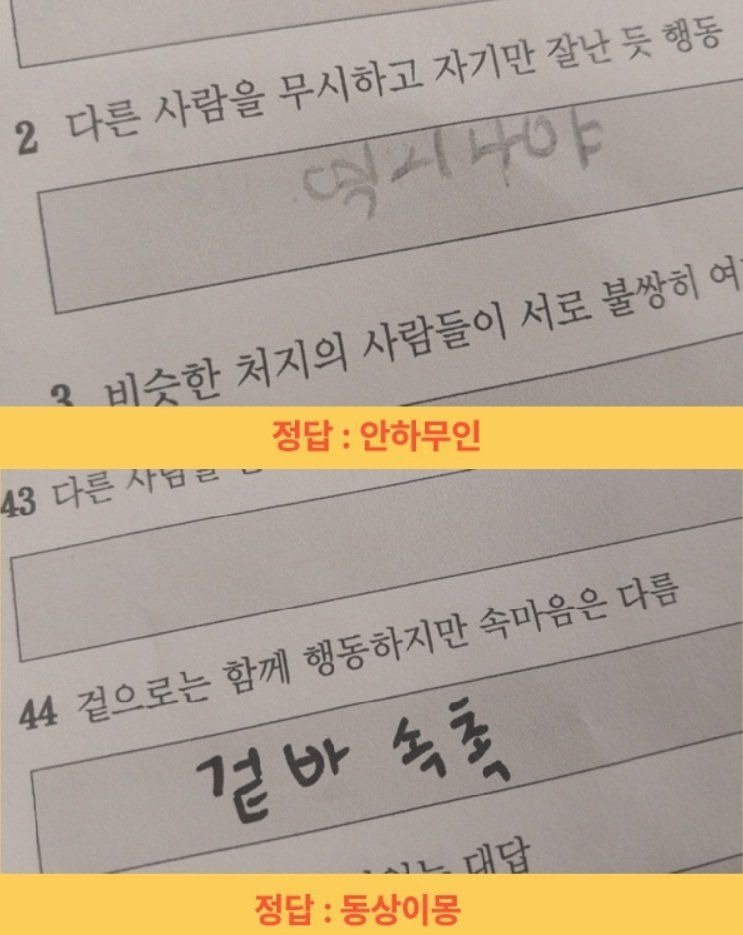 2 다른 사람을 무시하고 자기만 잘난 듯 행동
역시나야
3 비슷한 처지의 사람들이 서로 불쌍히 여
정답 : 안하무인
43 다른 사람을
44 겉으로는 함께 행동하지만 속마음은 다름
겉바 속촉
있는 대답
정답 : 동상이몽